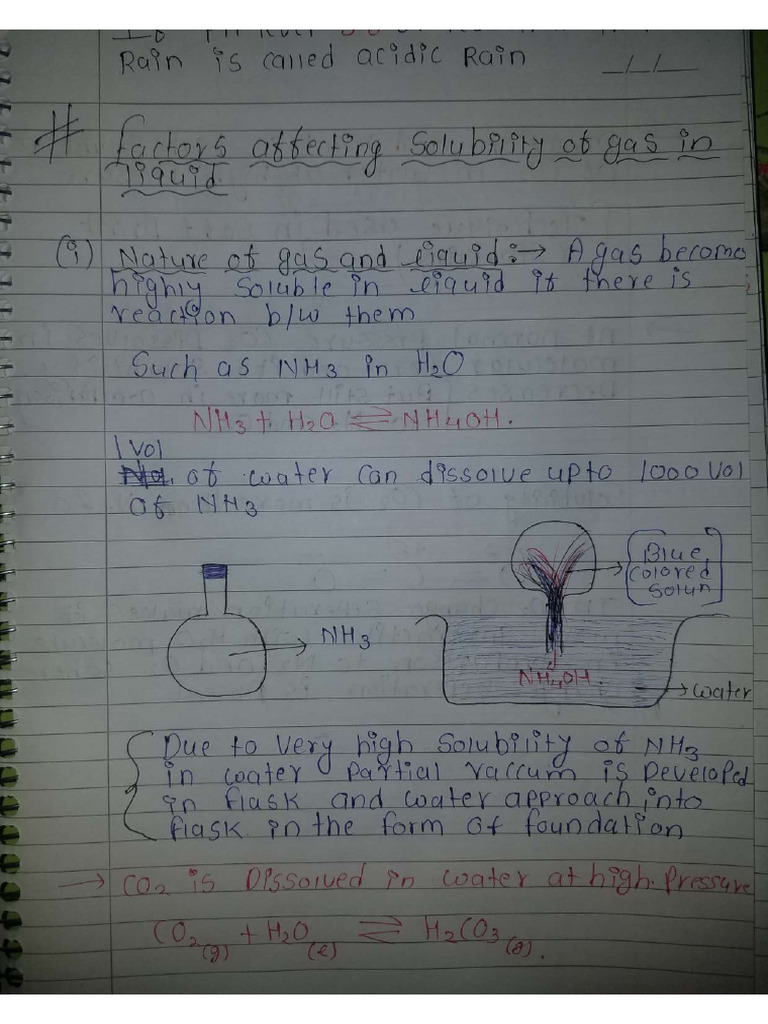 Rain is called acidic Rain __/__/__
# factors affecting solubility of gas in
liquid
(i) Nature of gas and liquid:→ A gas become
highly soluble in liquid if there is
reaction b/w them
Such as NH3 in H2O
NH3 + H2O ⇌ NH4OH.
1 Vol
of water can dissolve upto 1000 Vol
of NH3
Blue
colored
Solun
NH3
NH4OH.
water
Due to very high solubility of NH3
in water partial vaccum is Developed
in flask and water approach into
flask in the form of foundation
→ CO2 is Dissolved in water at high. Pressure
CO2(g) + H2O(l) ⇌ H2CO3(a).